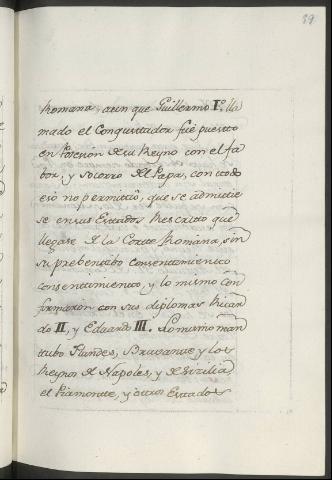 39
Romana, aun que Guillermo I.º lla
mado el Conquistador fue puesto
en Posesion de su Reyno con el fa
bor, y Socorro del Papa, con todo
eso no permitió, que se admitie
se en sus Estados Rescripto que
llegase de la Corte Romana, sin
su prebentibo consentimiento
consentimiento, y lo mismo con
formaron con sus diplomas Ricar
do II, y Eduardo III. Lo mismo man
tubo Flandes, Bravante y los
Reynos de Napoles, y de Sicilia,
el Piamonte, y otros Estados